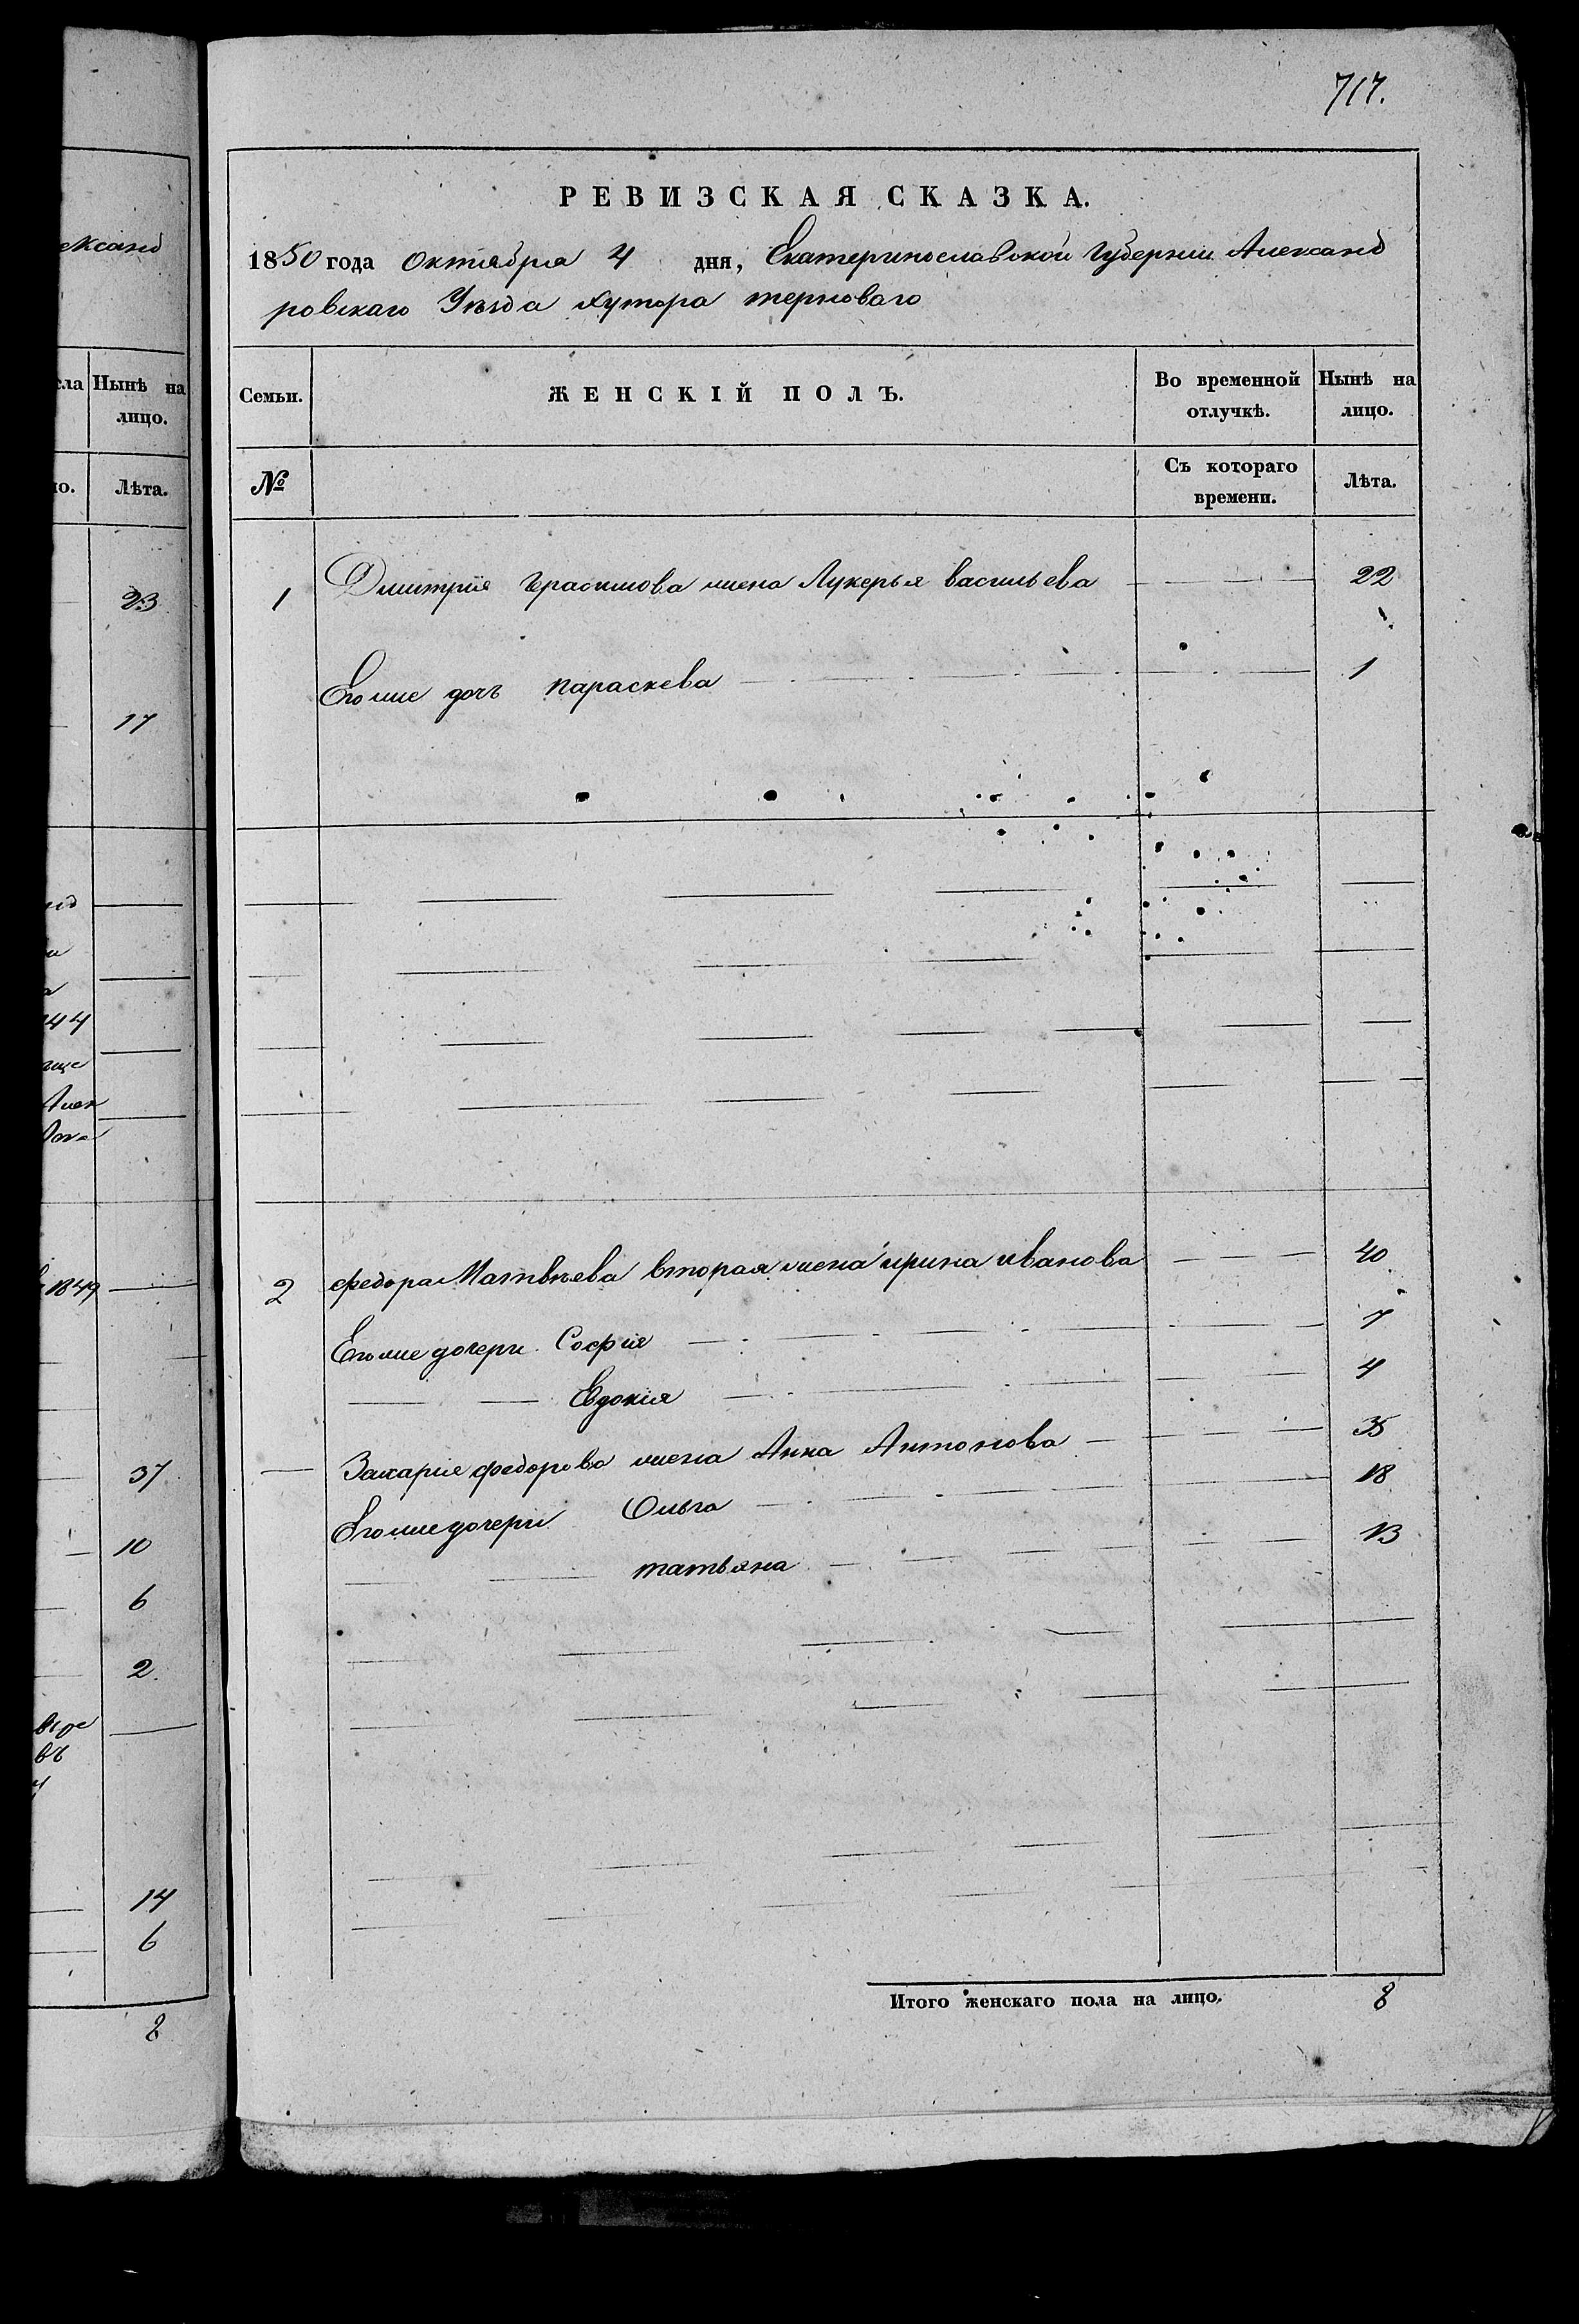 717.
РЕВИЗСКАЯ СКАЗКА.
1850 года Октября 4 дня, Екатеринославской Губернии Александ
ровскаго Уѣзда Хутора терноваго
Семьи. ЖЕНСКІЙ ПОЛЪ. Во временной отлучкѣ. Нынѣ на лицо.
№ Съ котораго времени. Лѣта.
1 Дмитрія Ѣрасимова жена Лукерья васильева 22
Его же дочъ параскева 1
2 федора Матвѣева вторая жена ирина иванова 40
Его же дочери София 7
Евдокия 4
Захарие федорова жена Анна Антонова 35
Его же дочери Ольга 18
татьяна 13
Итого женскаго пола на лицо. 8
ександ
сла Нынѣ на
лицо.
Лѣта.
23
17
1849
37
10
6
2
въ
14
6
8